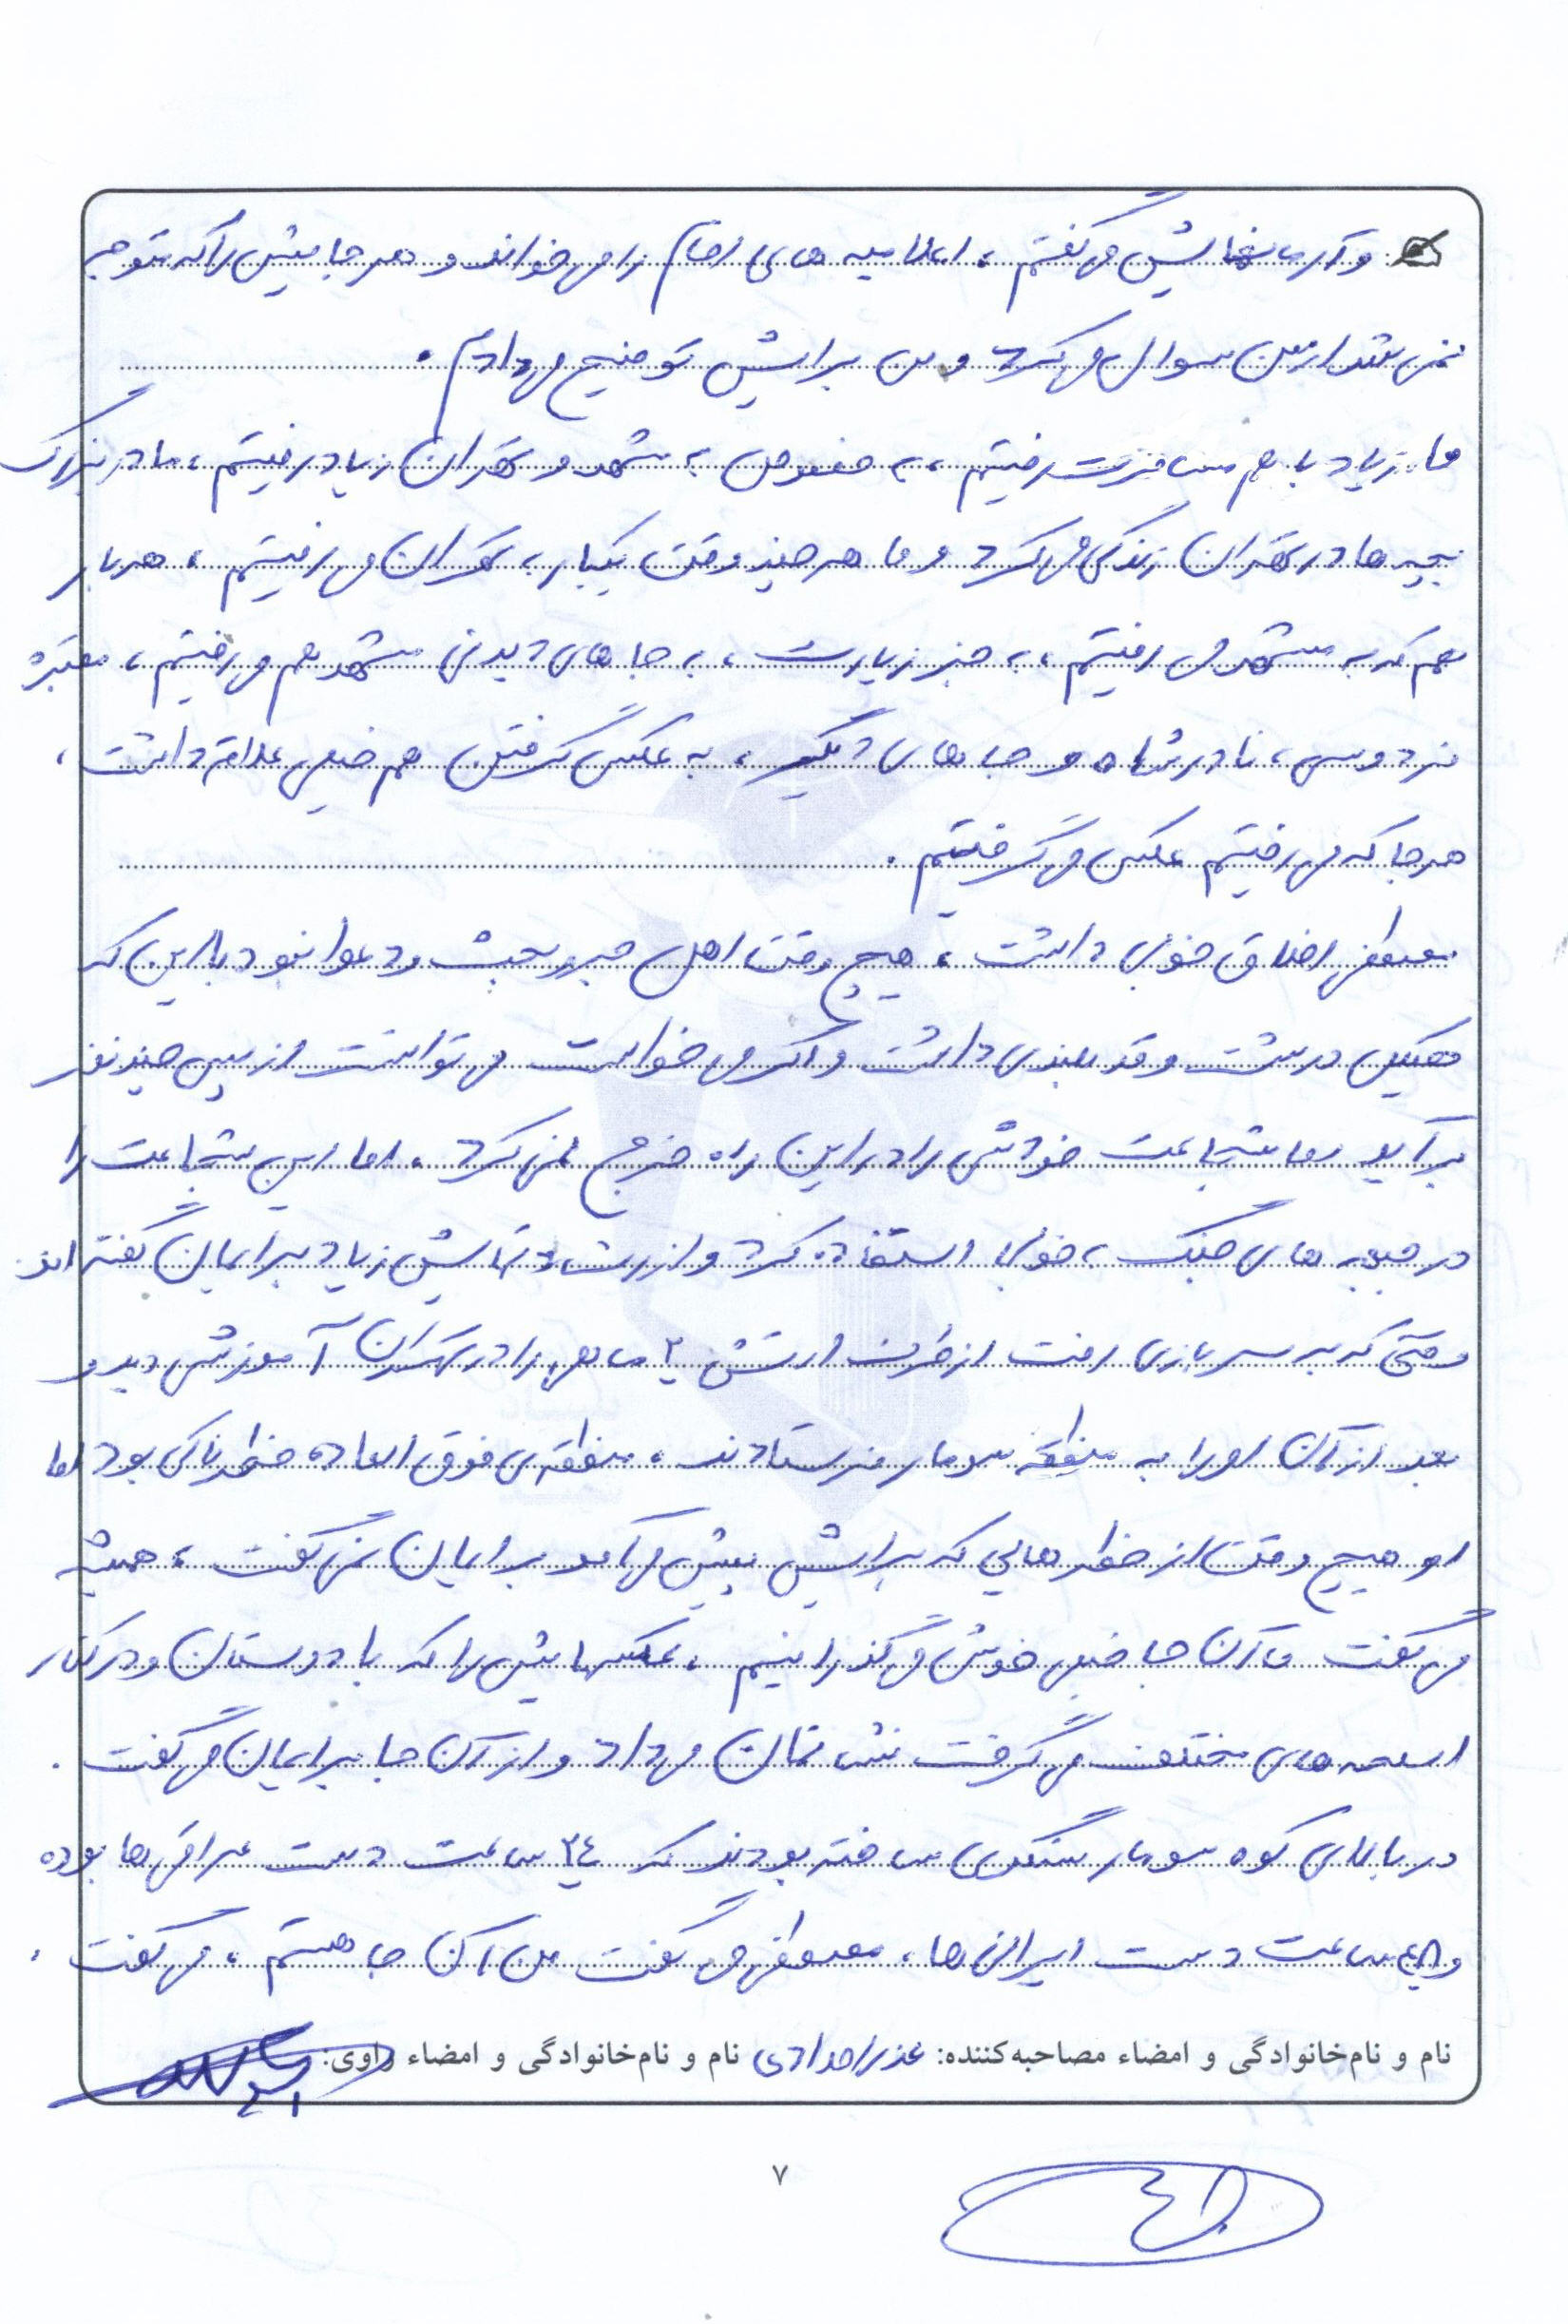 و آرمانهایش می‌گفتم، اعلامیه های امام را می‌خواند و هر جایش را که متوجه
نمی شد از من سوال می‌کرد و من برایش توضیح می‌دادم.
ما زیاد با هم مسافرت رفتیم، به خصوص به مشهد و تهران زیاد رفتیم، مادر بزرگ
بچه ها در تهران زندگی می‌کرد و ما هر چند وقت یکبار به تهران می‌رفتیم، هر بار
هم که به مشهد می رفتیم، به جز زیارت، به جاهای دیدنی مشهد هم می‌رفتیم، مقبره
فردوسی، نادرشاه و جاهای دیگر، به عکس گرفتن هم خیلی علاقه داشت،
هر جا که می‌رفتیم عکس می‌گرفتیم.
مصطفی اخلاق خوبی داشت، هیچ وقت اهل جر و بحث و دعوا نبود با این که
هیکل درشت و قد بلندی داشت و اگر می خواست می توانست از پس چند نفر
برآید اما شجاعت خودش را در این راه خرج نمی‌کرد، اما این شجاعت را
در جبهه های جنگ به خوبی استفاده کرد و از رشادتهایش زیاد برایمان گفته اند
وقتی که به سربازی رفت از طرف ارتش ۲ ماهی را در تهران آموزش دید و
بعد از آن او را به منطقه سومار فرستادند، منطقه‌ی فوق العاده خطرناکی بود اما
او هیچ وقت از خطرهایی که برایش پیش می‌آمد برایمان نمی‌گفت، همیشه
می گفت ما آن جا خیلی خوش می‌گذرانیم، عکسهایش را که با دوستان و در کنار
اسلحه های مختلف می‌گرفت نشانمان می‌داد و از آن جا برایمان می‌گفت.
در بالای کوه سومار سنگری ساخته بودند که ۲۴ ساعت دست عراقی‌ها بوده
و ساعت دست ایرانی‌ها، مصطفی می‌گفت من آن جا هستم، می‌گفت،
نام و نام‌خانوادگی و امضاء مصاحبه‌کننده: عذرا مدادی نام و نام‌خانوادگی و امضاء راوی:
۷